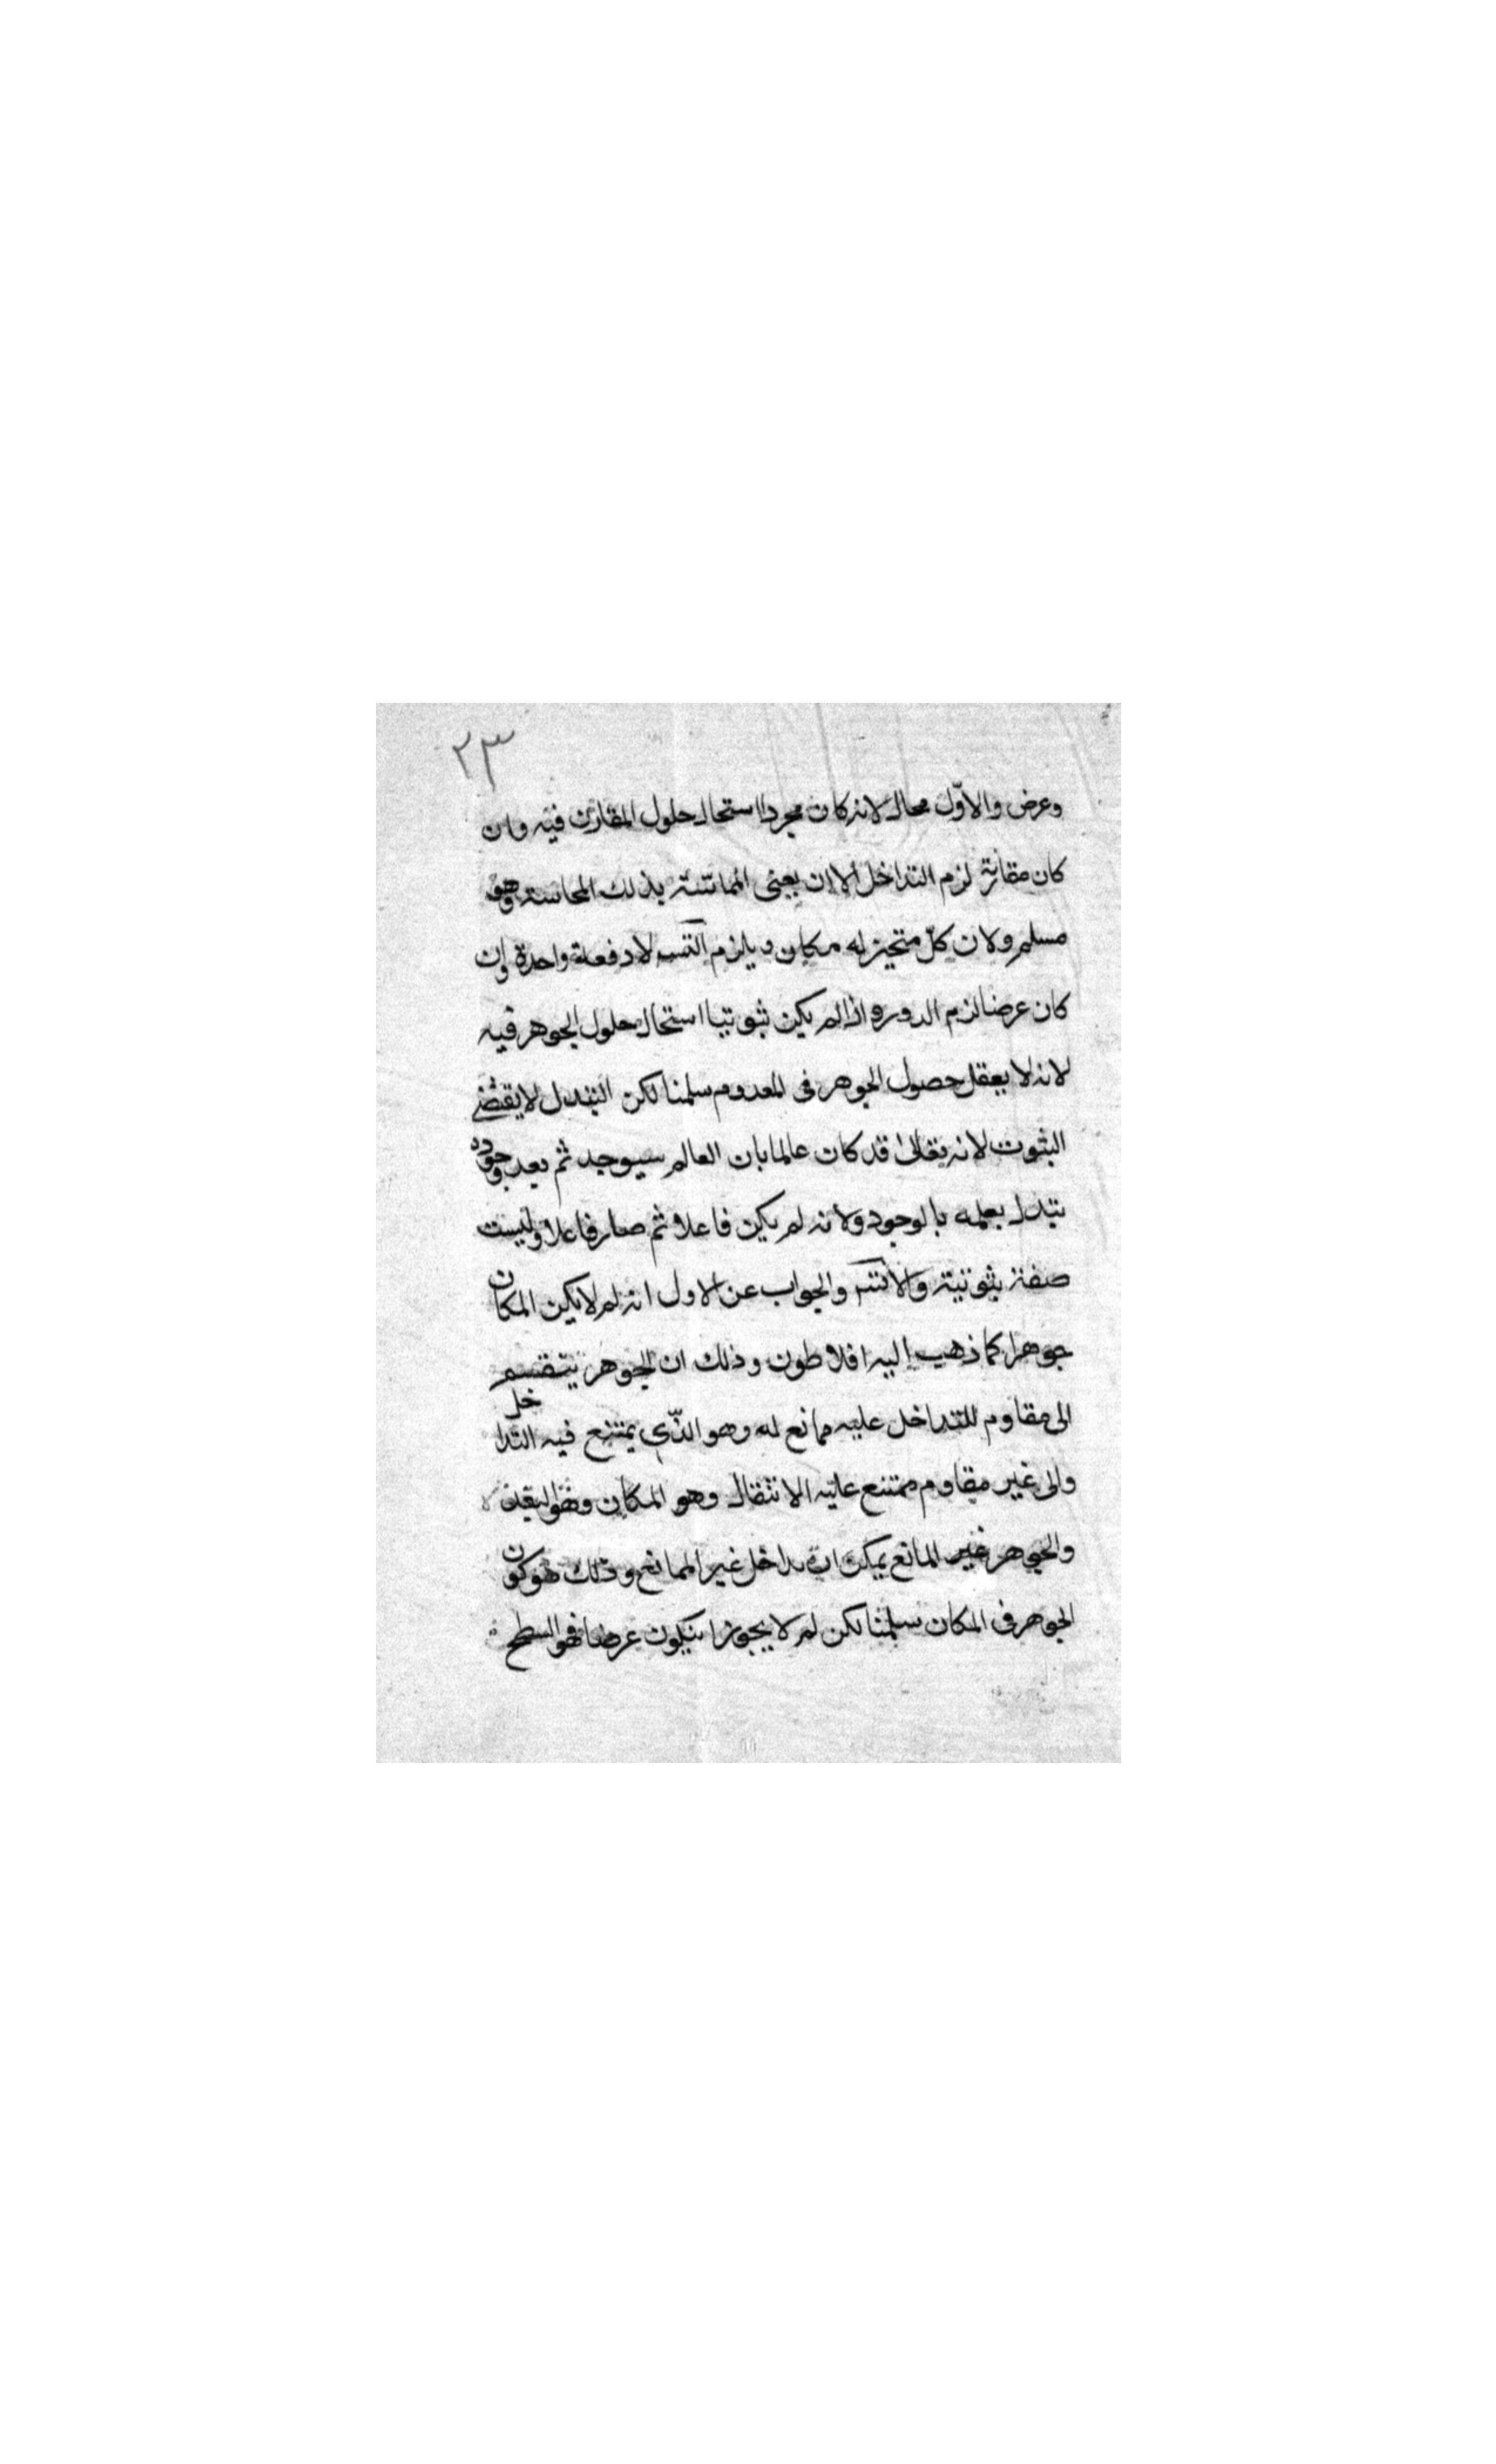 ٢٣
وعرض والاوّل محال لانه كان مجردا استحال حلول المقارن فيه وان
كان مقارنة لزم التداخل الا ان يعنى بذلك المماسة وهو
مسلم ولان كلّ متحيز له مكان ويلزم التسـ لا دفعة واحدة وان
كان عرضا لزم الدور واذا لم يكن ثبوتيا استحال حلول الجوهر فيه
لانه لا يعقل حصول الجوهر فى المعدوم سلمنا لكن التبدل لا يقتضى
الثبوت لانه تعالى قد كان عالما بان العالم سيوجد ثم بعد وجوده
تبدل بعلمه بالوجود ولانه لم يكن فاعلا ثم صار فاعلا وليست
صفة ثبوتية والا لتسـ والجواب عن الاول انه لم لا يكون المكان
جوهرا كما ذهب اليه افلاطون وذلك ان الجوهر ينقسم
الى مقاوم للتداخل عليه ممانع له وهو الذّى يمتنع فيه التداخل
والى غير مقاوم ممتنع عليه الانتقال وهو المكان وهو البعد
والجوهر غير المانع يمكن ان يداخل غير الممانع وذلك هو كون
الجوهر فى المكان سلمنا لكن لم لا يجوز ان يكون عرضا فهو السطح